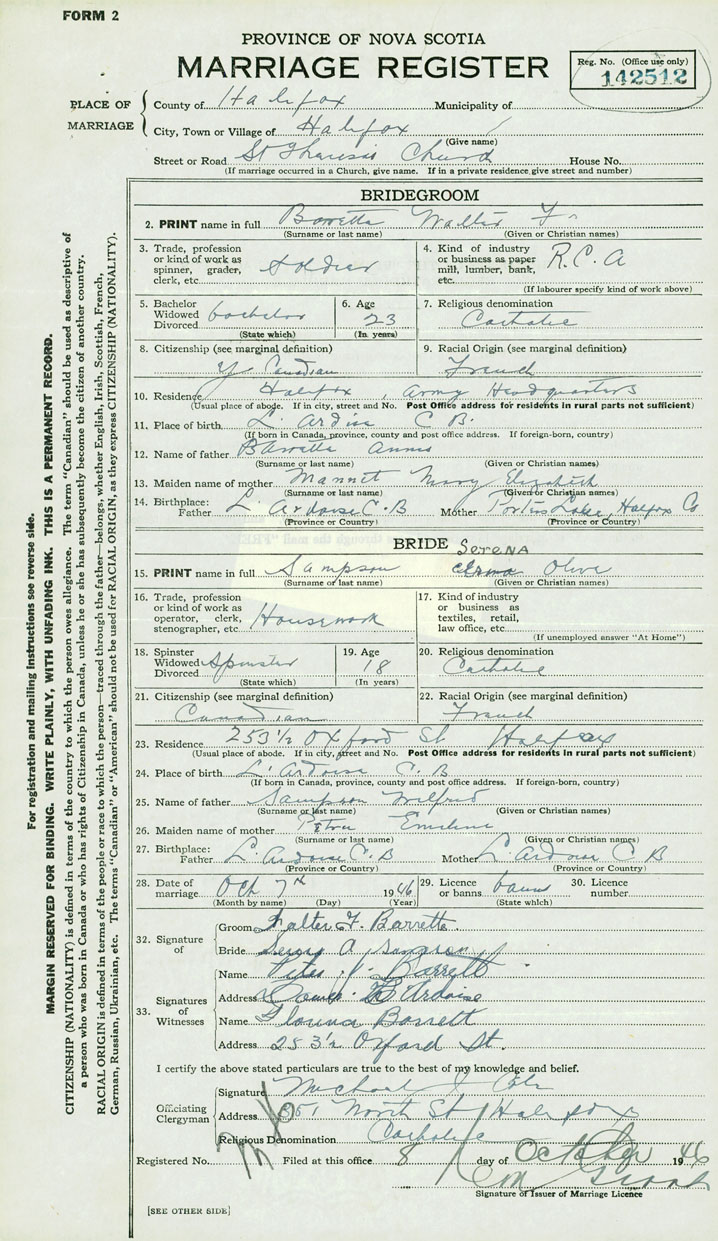 FORM 2
PROVINCE OF NOVA SCOTIA
MARRIAGE REGISTER
Reg. No. (Office use only)
142512
PLACE OF MARRIAGE
County of Halifax Municipality of
City, Town or Village of Halifax
(Give name)
Street or Road St Theresa's Church House No.
(If marriage occurred in a Church, give name. If in a private residence, give street and number)
BRIDEGROOM
2. PRINT name in full Barrette Walter F
(Surname or last name) (Given or Christian names)
3. Trade, profession or kind of work as spinner, grader, clerk, etc. Soldier
4. Kind of industry or business as paper mill, lumber, bank, etc. R.C.A
(If labourer specify kind of work above)
5. Bachelor Widowed Divorced bachelor
(State which)
6. Age 23
(In years)
7. Religious denomination
Catholic
8. Citizenship (see marginal definition)
Canadian
9. Racial Origin (see marginal definition)
French
10. Residence Halifax, Army Headquarters
(Usual place of abode. If in city, street and No. Post Office address for residents in rural parts not sufficient)
11. Place of birth L'Ardise C B.
(If born in Canada, province, county and post office address. If foreign-born, country)
12. Name of father Barrette
(Surname or last name) (Given or Christian names)
13. Maiden name of mother Mannet Mary Elizabeth
(Surname or last name) (Given or Christian names)
14. Birthplace: Father L'Ardoise C.B Mother Porters Lake, Halifax Co
(Province or Country) (Province or Country)
BRIDE
SERENA
15. PRINT name in full Sampson Olive
(Surname or last name) (Given or Christian names)
16. Trade, profession or kind of work as operator, clerk, stenographer, etc. Housework
17. Kind of industry or business as textiles, retail, law office, etc.
(If unemployed answer "At Home")
18. Spinster Widowed Divorced Spinster
(State which)
19. Age 18
(In years)
20. Religious denomination
Catholic
21. Citizenship (see marginal definition)
Canadian
22. Racial Origin (see marginal definition)
French
23. Residence 253 1/2 Oxford St Halifax
(Usual place of abode. If in city, street and No. Post Office address for residents in rural parts not sufficient)
24. Place of birth L'Ardoise C.B
(If born in Canada, province, county and post office address. If foreign-born, country)
25. Name of father Sampson Wilfrid
(Surname or last name) (Given or Christian names)
26. Maiden name of mother Emeline
(Surname or last name) (Given or Christian names)
27. Birthplace: Father L'Ardoise C.B Mother L'Ardoise C B
(Province or Country) (Province or Country)
28. Date of marriage Oct 7th 1946
(Month by name) (Day) (Year)
29. Licence or banns banns
(State which)
30. Licence number
32. Signature of
Groom Walter F. Barrette
Bride Sampson
33. Signatures of Witnesses
Name Peter J. Barrett
Address L'Ardoise
Name Barrett
Address 253 1/2 Oxford St.
I certify the above stated particulars are true to the best of my knowledge and belief.
Officiating Clergyman
Signature Michael J
Address 351 North St Halifax
Religious Denomination Catholic
Registered No. Filed at this office 8 day of October 1946
Signature of Issuer of Marriage Licence
[SEE OTHER SIDE]
For registration and mailing instructions see reverse side.
MARGIN RESERVED FOR BINDING. WRITE PLAINLY, WITH UNFADING INK. THIS IS A PERMANENT RECORD.
CITIZENSHIP (NATIONALITY) is defined in terms of the country to which the person owes allegiance. The term "Canadian" should be used as descriptive of
a person who was born in Canada or who has rights of Citizenship in Canada, unless he or she has subsequently become the citizen of another country.
RACIAL ORIGIN is defined in terms of the people or race to which the person—traced through the father—belongs, whether English, Irish, Scottish, French,
German, Russian, Ukrainian, etc. The terms "Canadian" or "American" should not be used for RACIAL ORIGIN, as they express CITIZENSHIP (NATIONALITY).